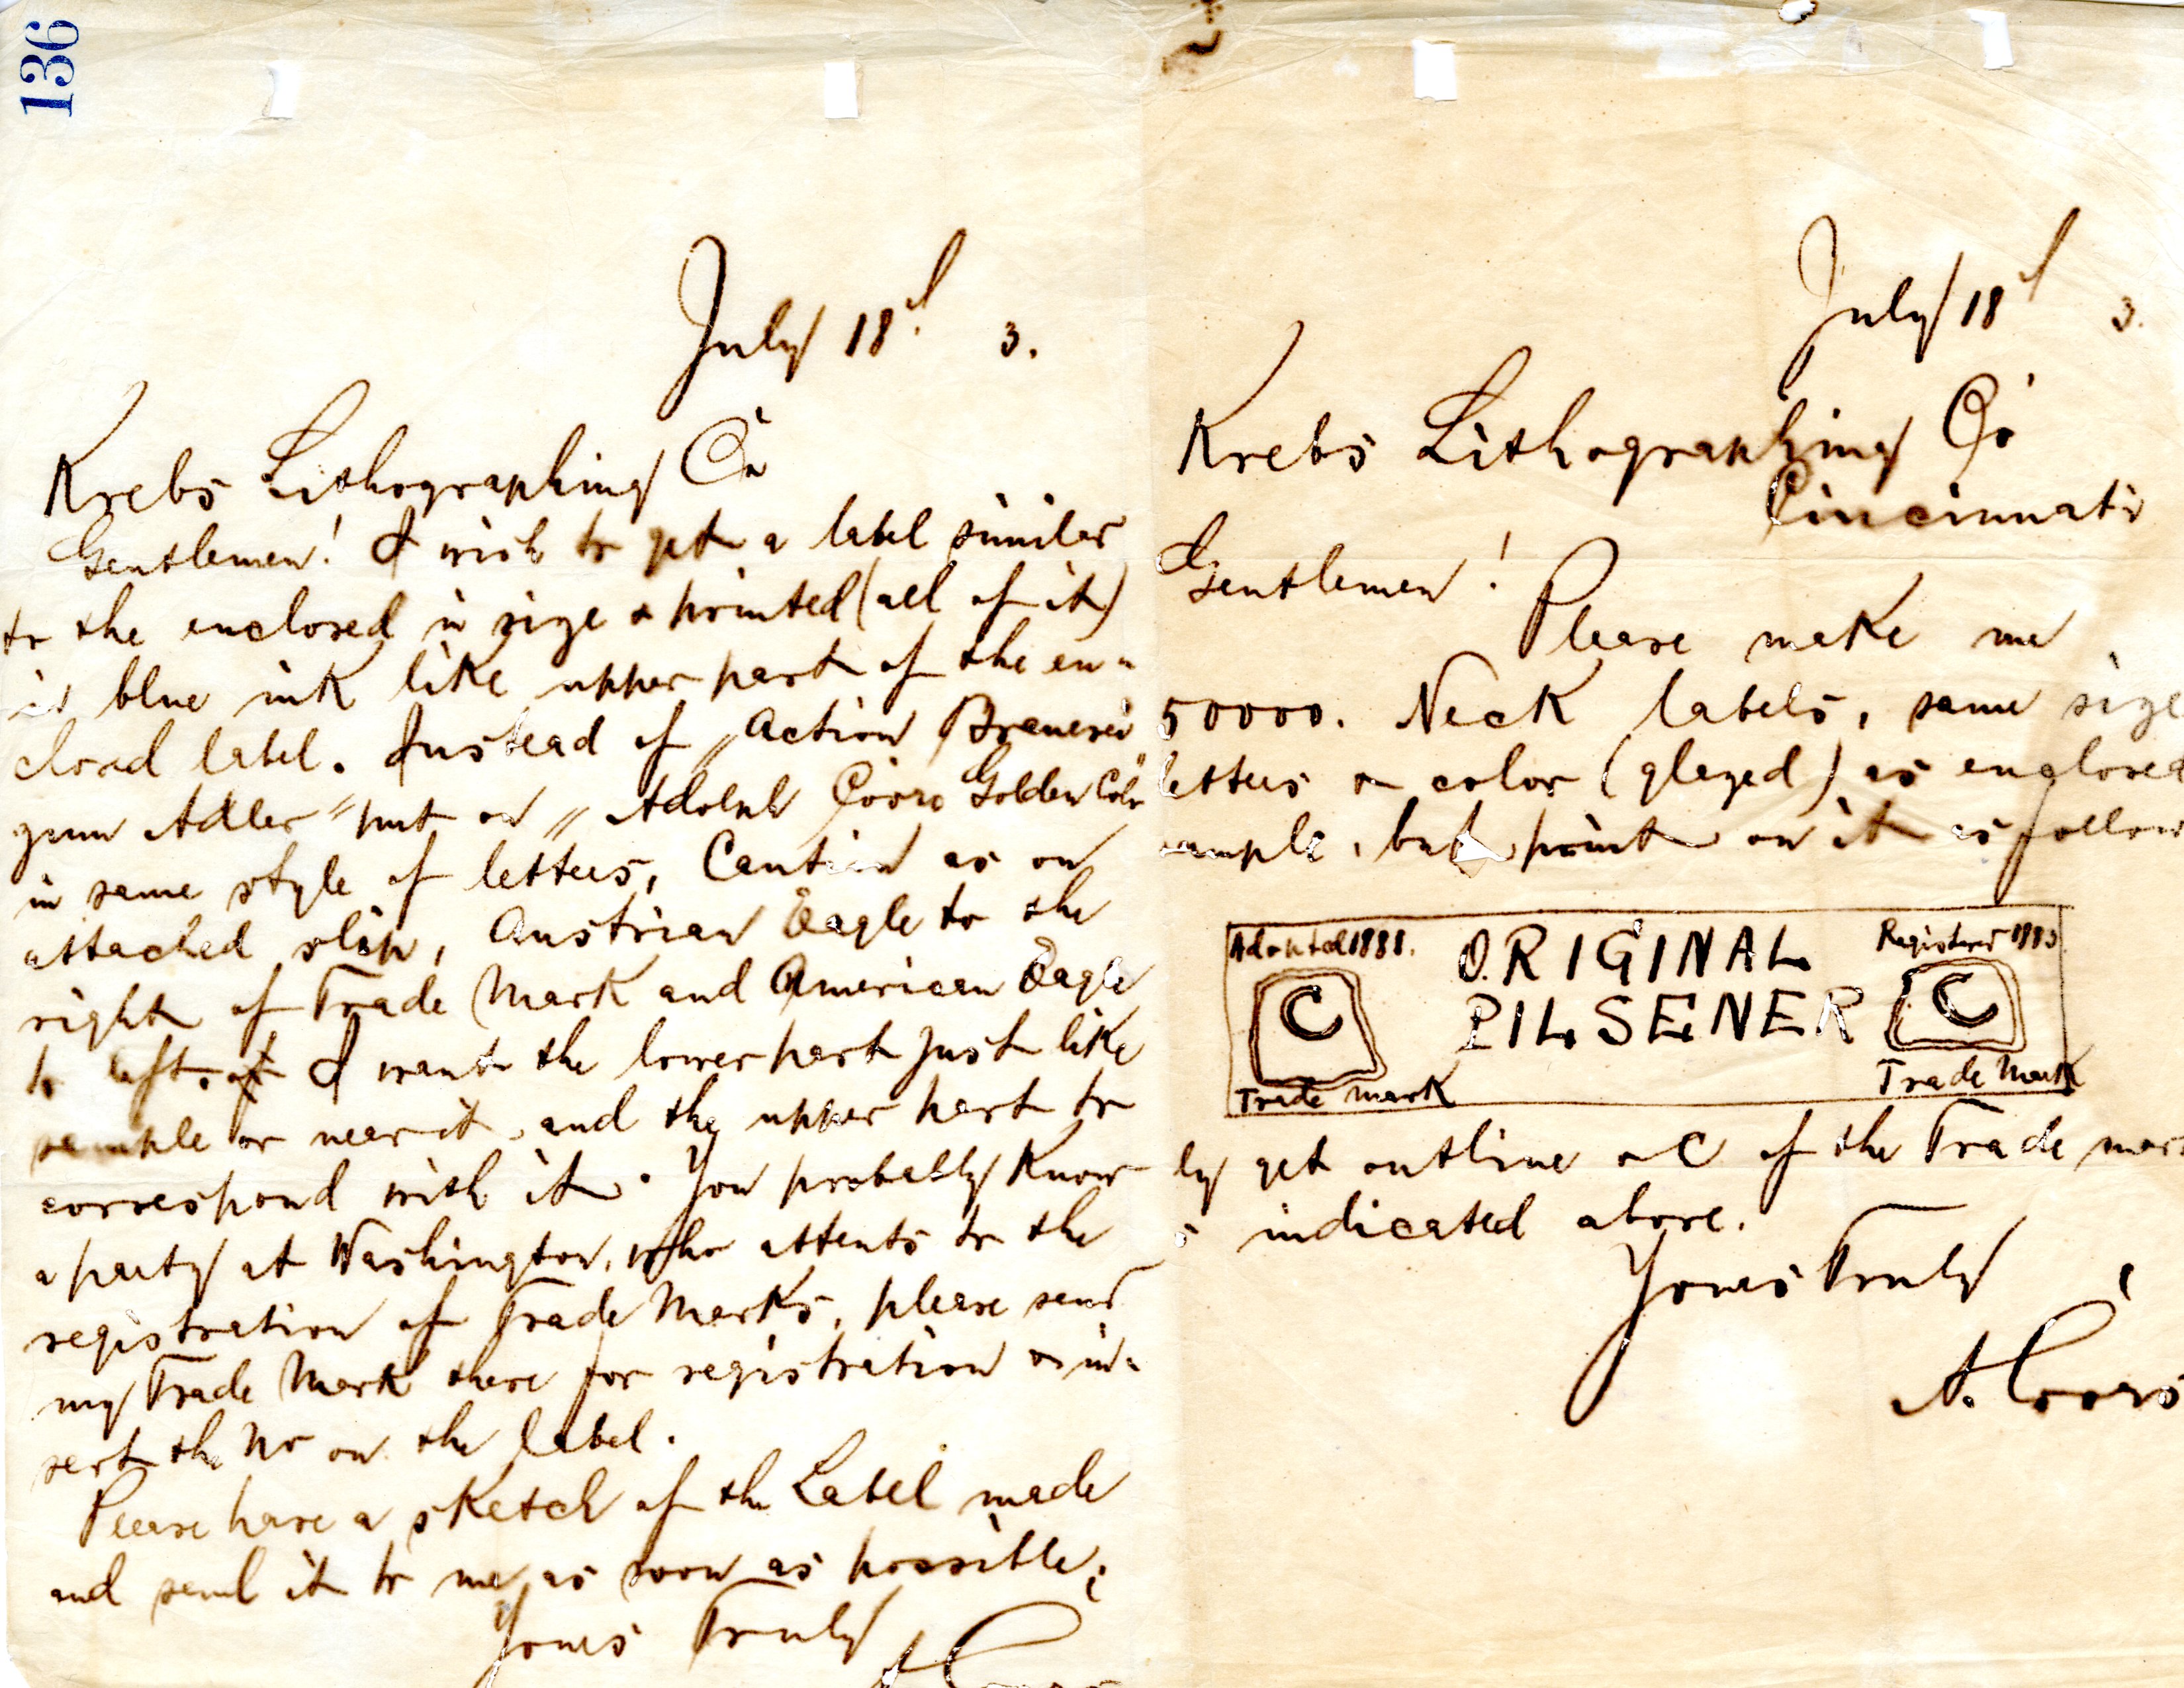 136
July 18th 3.
Krebs Lithographing Co
Gentlemen! I wish to get a label similar
to the enclosed in size & printed (all of it)
in blue ink like upper part of the en-
closed label. Instead of „Action Brauerei
zum Adler" put on „Adolph Coors Golden Colo"
in same style of letters, Caution as on
attached slip, Austrian Eagle to the
right of Trade Mark and American Eagle
to left. I want the lower part just like
sample or near it, and the upper part to
correspond with it. You probably Know
a party at Washington, who attents to the
registration of Trade Marks, please send
my Trade Mark there for registration & in-
sert the No on the Label.
Please have a sketch of the Label made
and send it to me, as soon as possible,
Yours Truly
A Coors
July 18th 3.
Krebs Lithographing Co
Cincinnati
Gentlemen!
Please make me
50000. Neck labels, same size
letters & color (glazed) as enclosed
sample, but print on it as follow
Adopted 1881. ORIGINAL Registered 1883
C PILSENER C
Trade Mark Trade Mark
ly get outline & C of the Trade mar
s indicated above.
Yours Truly
A. Coors